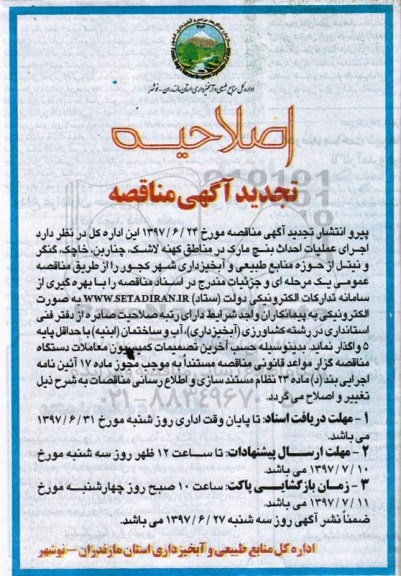 اداره کل منابع طبیعی و آبخیزداری استان مازندران - نوشهر
اصلاحیه
تجدید آگهی مناقصه
پیرو انتشار تجدید آگهی مناقصه مورخ ۱۳۹۷/۶/۲۴ این اداره کل در نظر دارد
اجرای عملیات احداث بنچ مارک در مناطق کهنه لاشک، چناربن، خاچک، گنگر
و نیتل از حوزه منابع طبیعی و آبخیزداری شهر کجور را از طریق مناقصه
عمومی یک مرحله ای و جزئیات مندرج در اسناد مناقصه را با بهره گیری از
سامانه تدارکات الکترونیکی دولت (ستاد) WWW.SETADIRAN.IR به صورت
الکترونیکی به پیمانکاران واجد شرایط دارای رتبه صلاحیت صادره از دفتر فنی
استانداری در رشته کشاورزی (آبخیزداری)، آب و ساختمان (ابنیه) با حداقل پایه
۵ واگذار نماید. بدینوسیله حسب آخرین تصمیمات کمیسیون معاملات دستگاه
مناقصه گزار مواعد قانونی مناقصه مستنداً به موجب مجوز ماده ۱۷ آئین نامه
اجرایی بند (د) ماده ۲۳ نظام مستندسازی و اطلاع رسانی مناقصات به شرح ذیل
تغییر و اصلاح می گردد.
۱- مهلت دریافت اسناد: تا پایان وقت اداری روز شنبه مورخ ۱۳۹۷/۶/۳۱
می باشد.
۲- مهلت ارسال پیشنهادات: تا ساعت ۱۲ ظهر روز سه شنبه مورخ
۱۳۹۷/۷/۱۰ می باشد.
۳- زمان بازگشایی پاکت: ساعت ۱۰ صبح روز چهارشنبه مورخ
۱۳۹۷/۷/۱۱ می باشد.
ضمناً نشر آگهی روز سه شنبه ۱۳۹۷/۶/۲۷ می باشد.
اداره کل منابع طبیعی و آبخیزداری استان مازندران - نوشهر